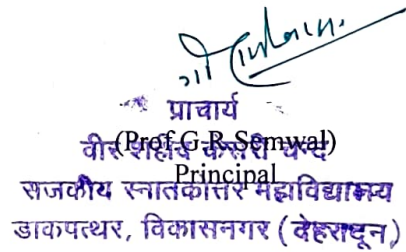 प्राचार्य
(Prof.G.R.Semwal)
वीर शहीद केसरी चन्द
Principal
राजकीय स्नातकोत्तर महाविद्यालय
डाकपत्थर, विकासनगर (देहरादून)